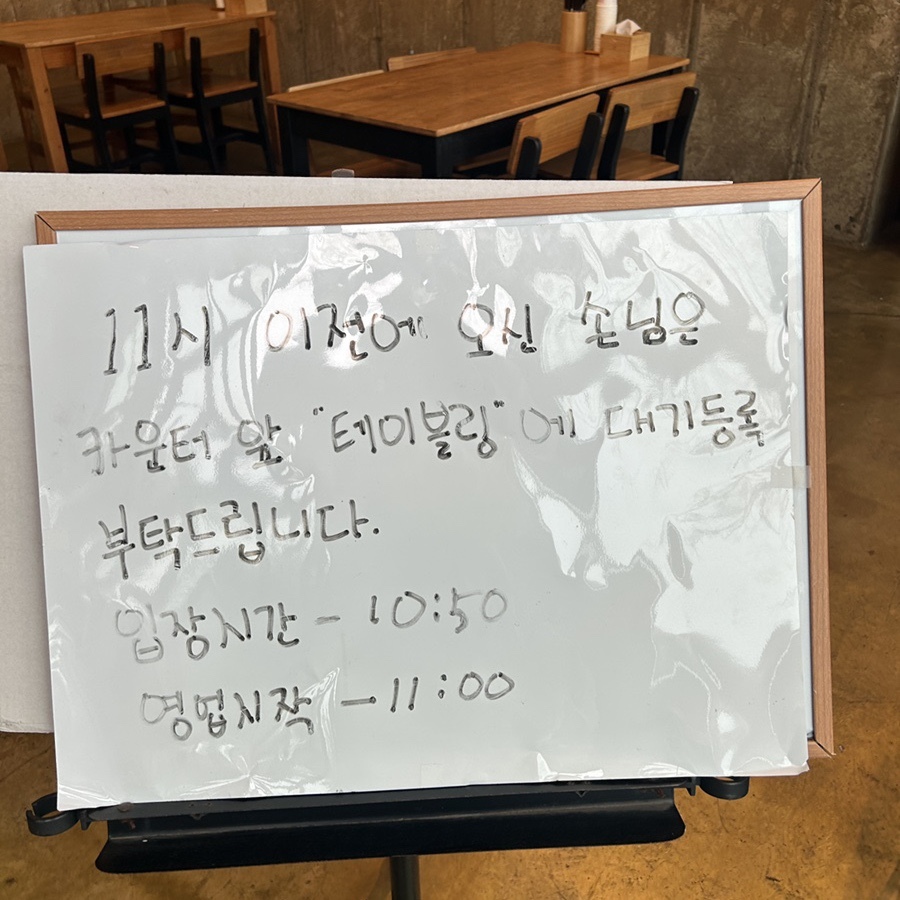 11시 이전에 오신 손님은
카운터 앞 "테이블링"에 대기등록
부탁드립니다.
입장시간 - 10:50
영업시작 - 11:00